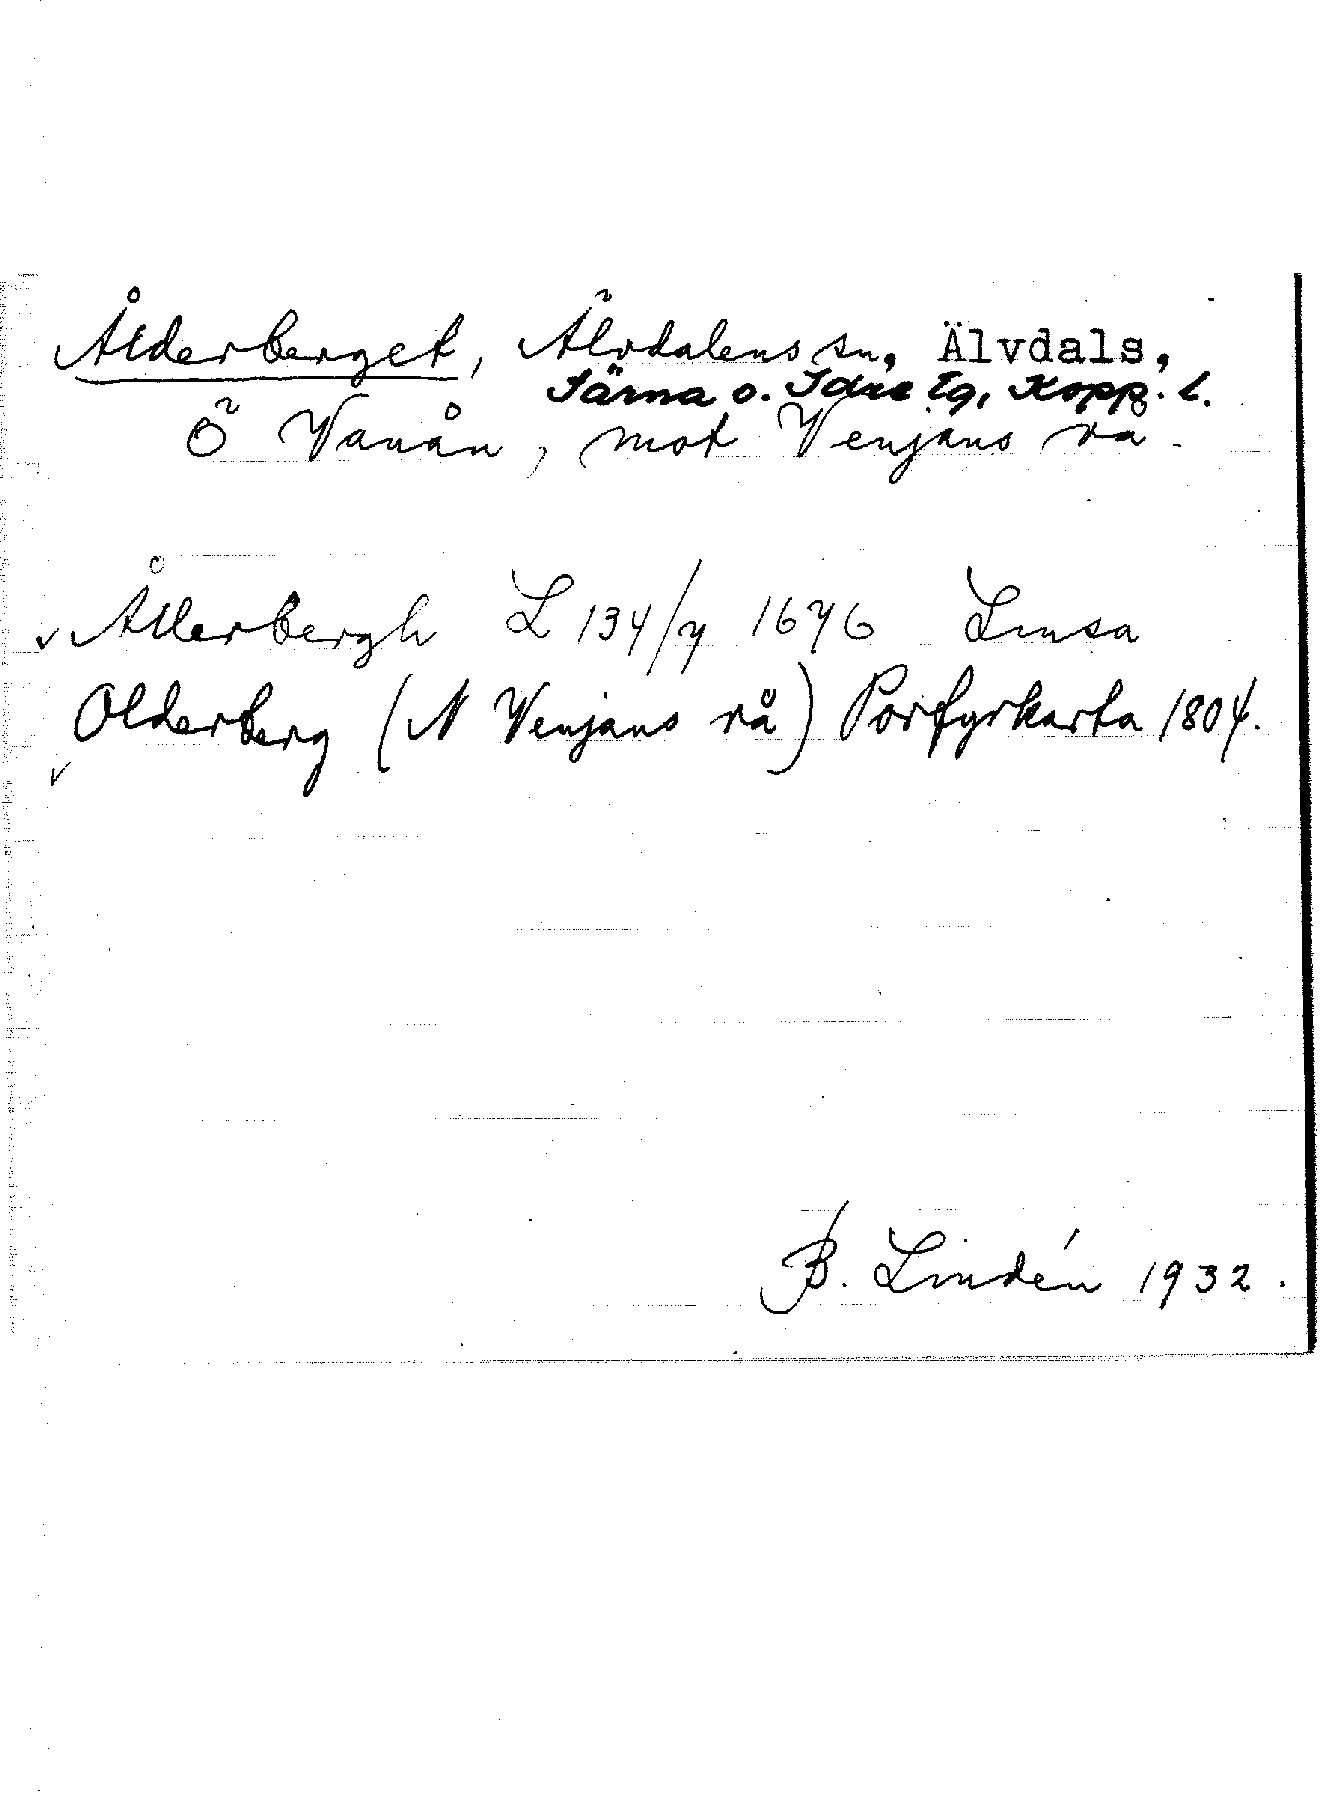 Ålderberget, Älvdalens sn, Älvdals,
Särna o. Idre tg, Kopp. l.
Ö Vanån, mot Venjans rå.
✓ Ållerbergh L 134/7 1676 Limsa
Olderberg (N Venjans rå) Porfyrkarta 1804.
✓
B. Lindén 1932.